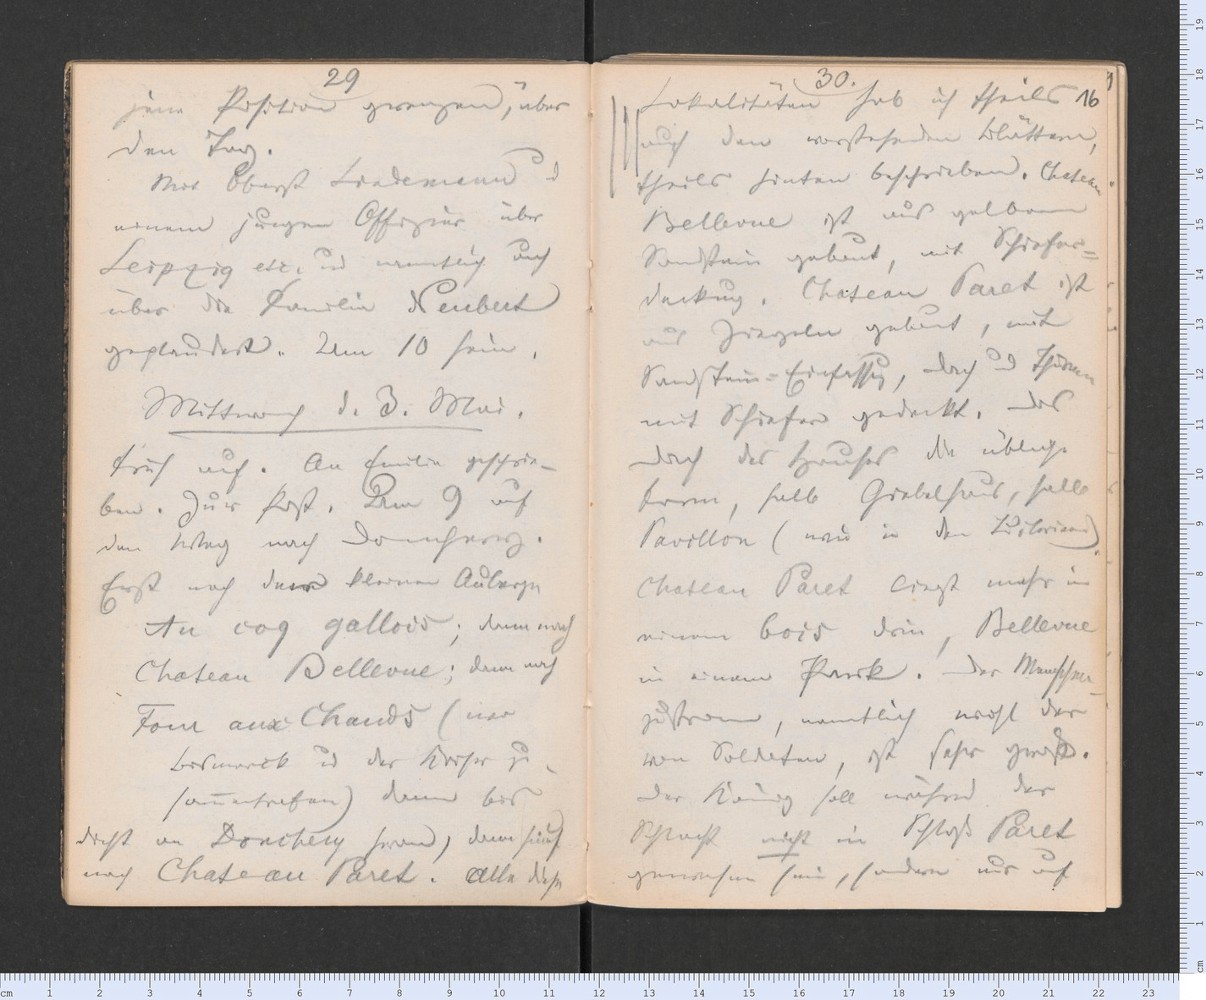 29
jene Position gewesen, über
den Tag.
Mit Oberst Lindemann u
einem jungen Offizier über
Leipzig etc. und namentlich auch
über die Familie Neubert
geplaudert. Um 10 heim.
Mittwoch d. 3. Mai.
Früh auf. An Emilie geschrie-
ben. Zur Post. Um 9 auf
den Weg nach Donchery.
Erst nach der kleinen Auberge
Au coq gallois; dann nach
Chateau Bellevue; dann nach
Four aux Chauds (wo
Bismarck u der Kaiser zu-
sammentrafen) dann bis
dicht an Donchery heran, dann hinauf
nach Chateau Paret. Alle diese
30.
16
Lokalitäten hab ich theils
auf den vorstehenden Blättern,
theils hinten beschrieben. Chateau
Bellevue ist aus gelbem
Sandstein gebaut, mit Schiefer=
deckung. Chateau Paret ist
aus Ziegeln gebaut, mit
Sandstein=Einfassung, Dach und Thürme
mit Schiefer gedeckt. Das
Dach des Hauses die übliche
Form, halb Giebelhaus, halb
Pavillon (wie in den Tuilerieen)
Chateau Paret liegt mehr in
einem bois drin, Bellevue
in einem Park. Der Menschen-
zustrom, namentlich wohl der
von Soldaten, ist sehr groß.
Der König soll während der
Schlacht nicht in Schloß Paret
gewesen sein, sondern nur auf